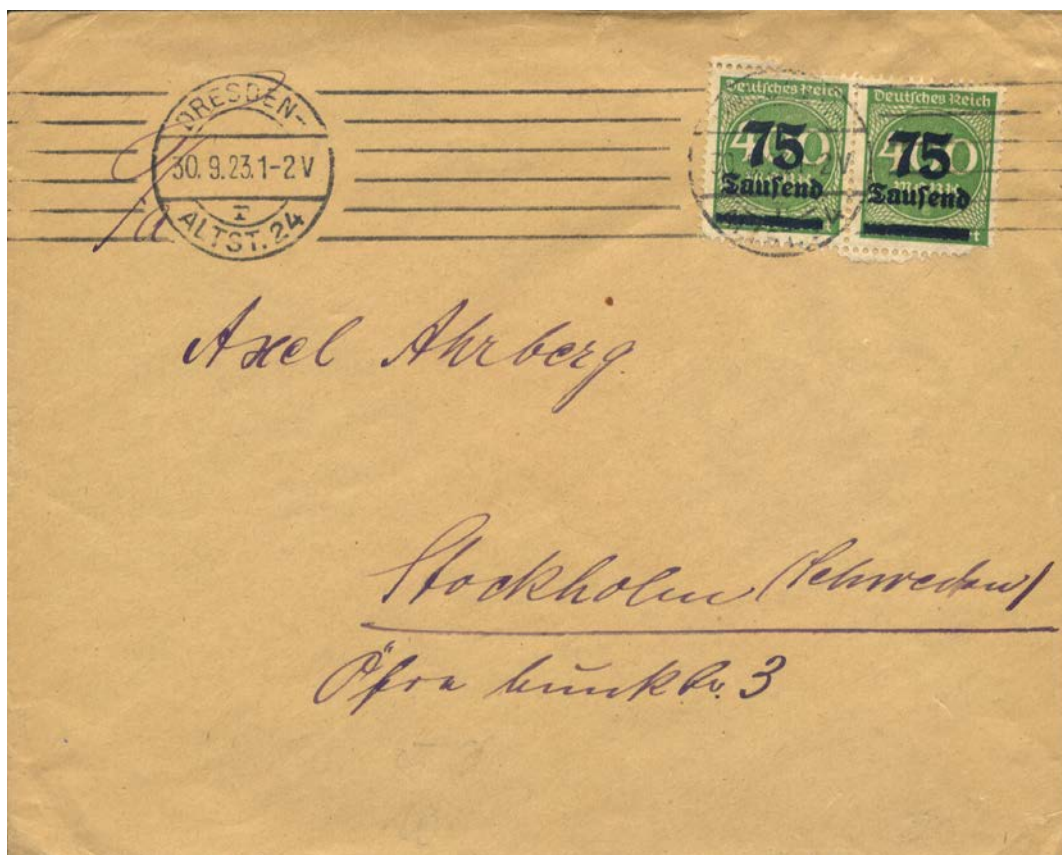 DRESDEN-
30. 9.23. 1-2 V
I
ALTST. 24
Deutsches Reich
400
75
Tausend
Deutsches Reich
400
75
Tausend
Axel Ahrberg
Stockholm (Schweden)
Öfra 3